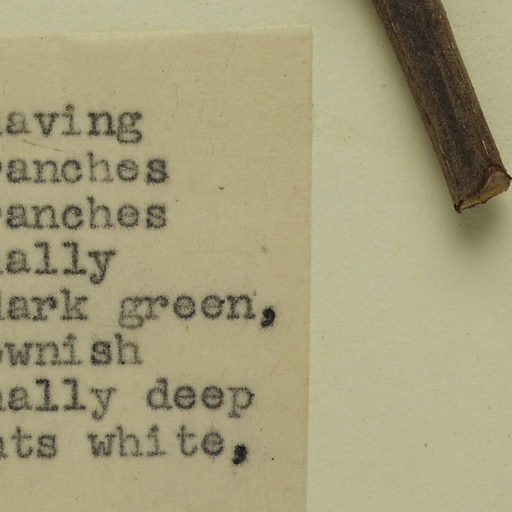 aving
ranches
ranches
ally
dark green,
ownish
ally deep
nts white,